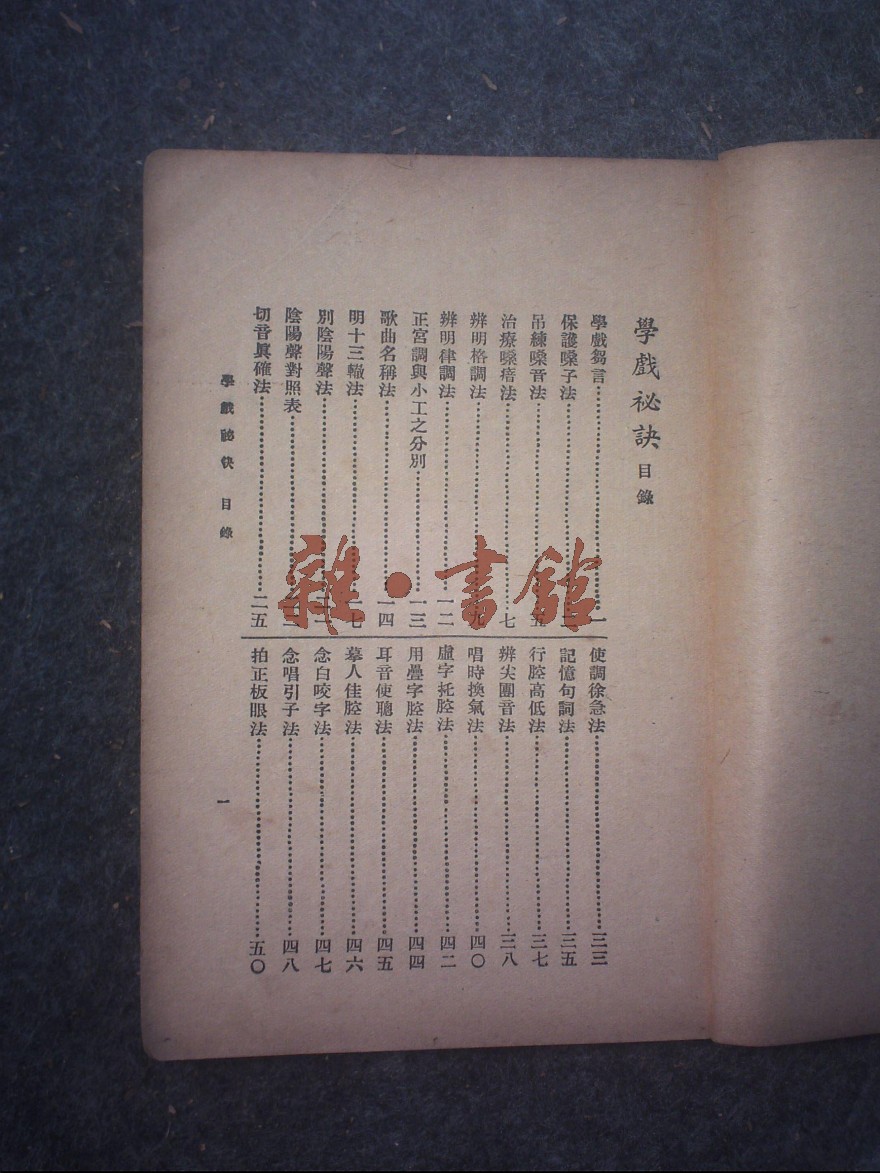 學戲祕訣目錄
學戲芻言……一
保護嗓子法……
吊練嗓音法……五
治療嗓瘖法……七
辨明格調法……九
辨明律調法……一二
正宮調與小工之分別……一三
歌曲名稱法……一四
明十三轍法……一七
別陰陽聲法……
陰陽聲對照表……
切音眞確法……二五
使調徐急法……三三
記憶句詞法……三五
行腔高低法……三七
辨尖團音法……三八
唱時換氣法……四〇
虛字托腔法……四二
用疊字腔法……四四
耳音使聰法……四五
摹人佳腔法……四六
念白咬字法……四七
念唱引子法……四八
拍正板眼法……五〇
學戲祕訣 目錄
一
雜·書館